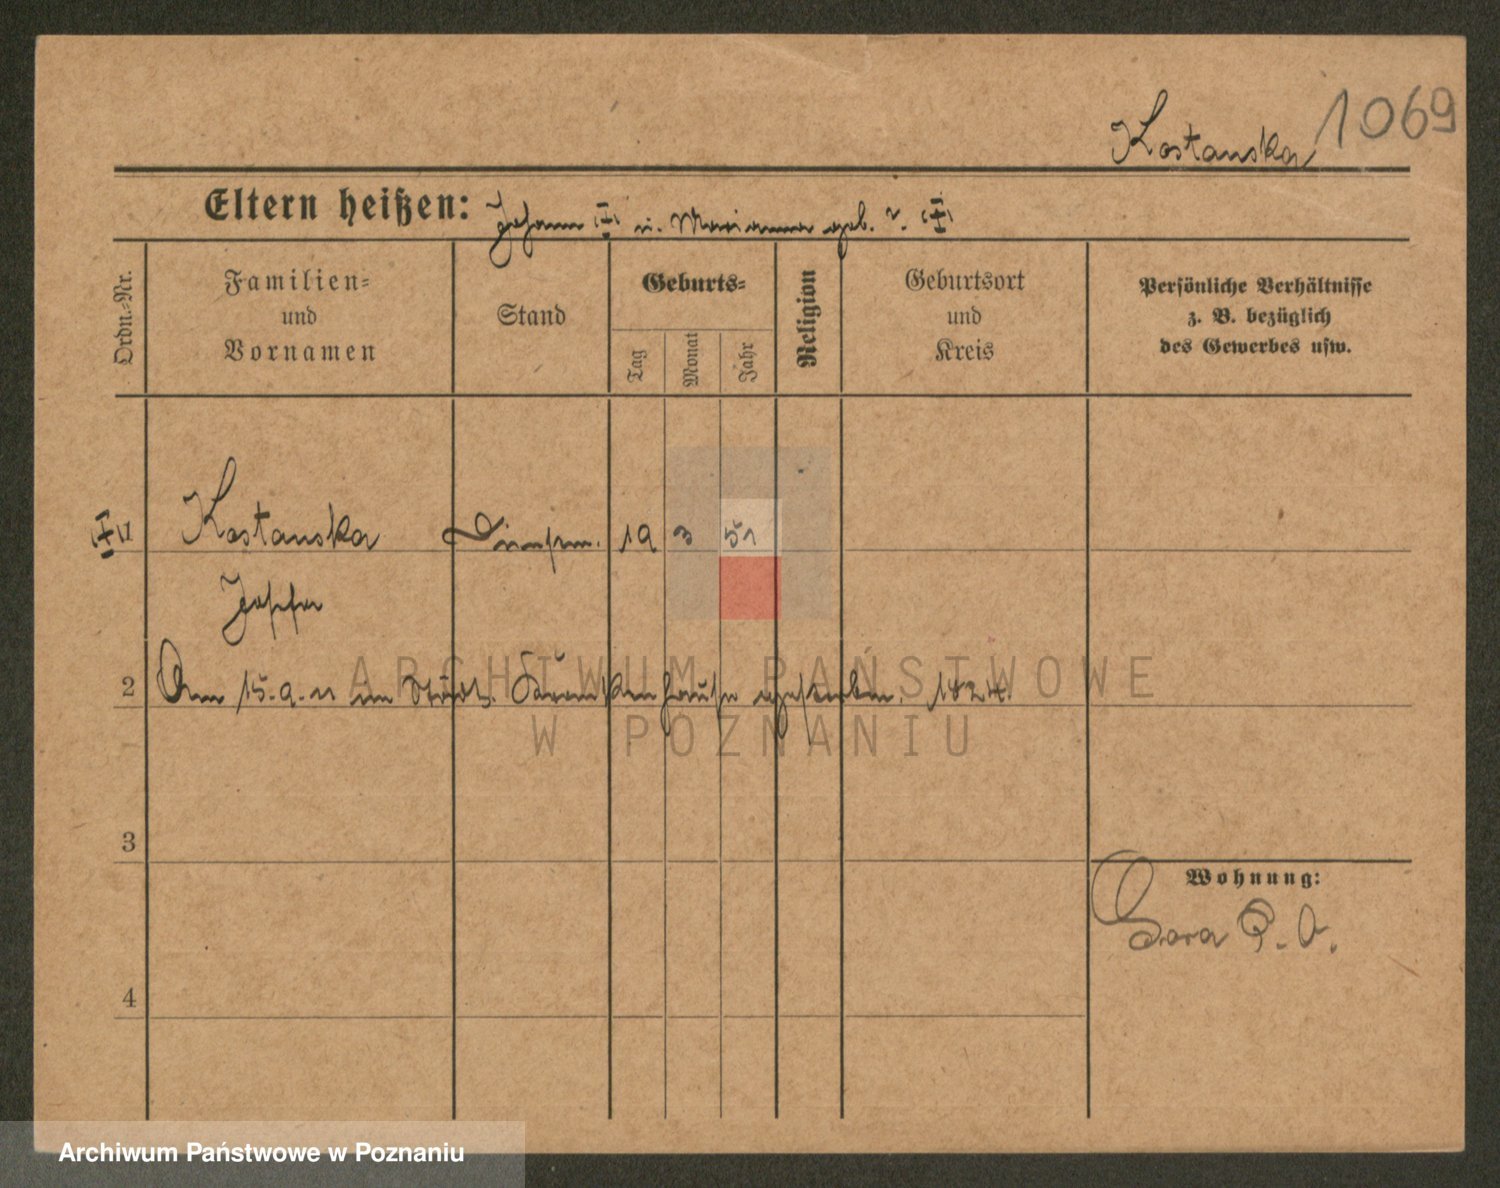 Kostanska 1069
Eltern heißen: Johann u. Marianna geb. ?.
Ordn.-Nr.
Familien-
und
Vornamen
Stand
Geburts-
Tag
Monat
Jahr
Religion
Geburtsort
und
Kreis
Persönliche Verhältnisse
z. B. bezüglich
des Gewerbes usw.
1 Kostanska 19 3 51
Josefa
2 Am 15.9.11 im Städt. Krankenhause gestorben. 1824.
3
Wohnung:
4
ARCHIWUM PAŃSTWOWE
W POZNANIU
Archiwum Państwowe w Poznaniu